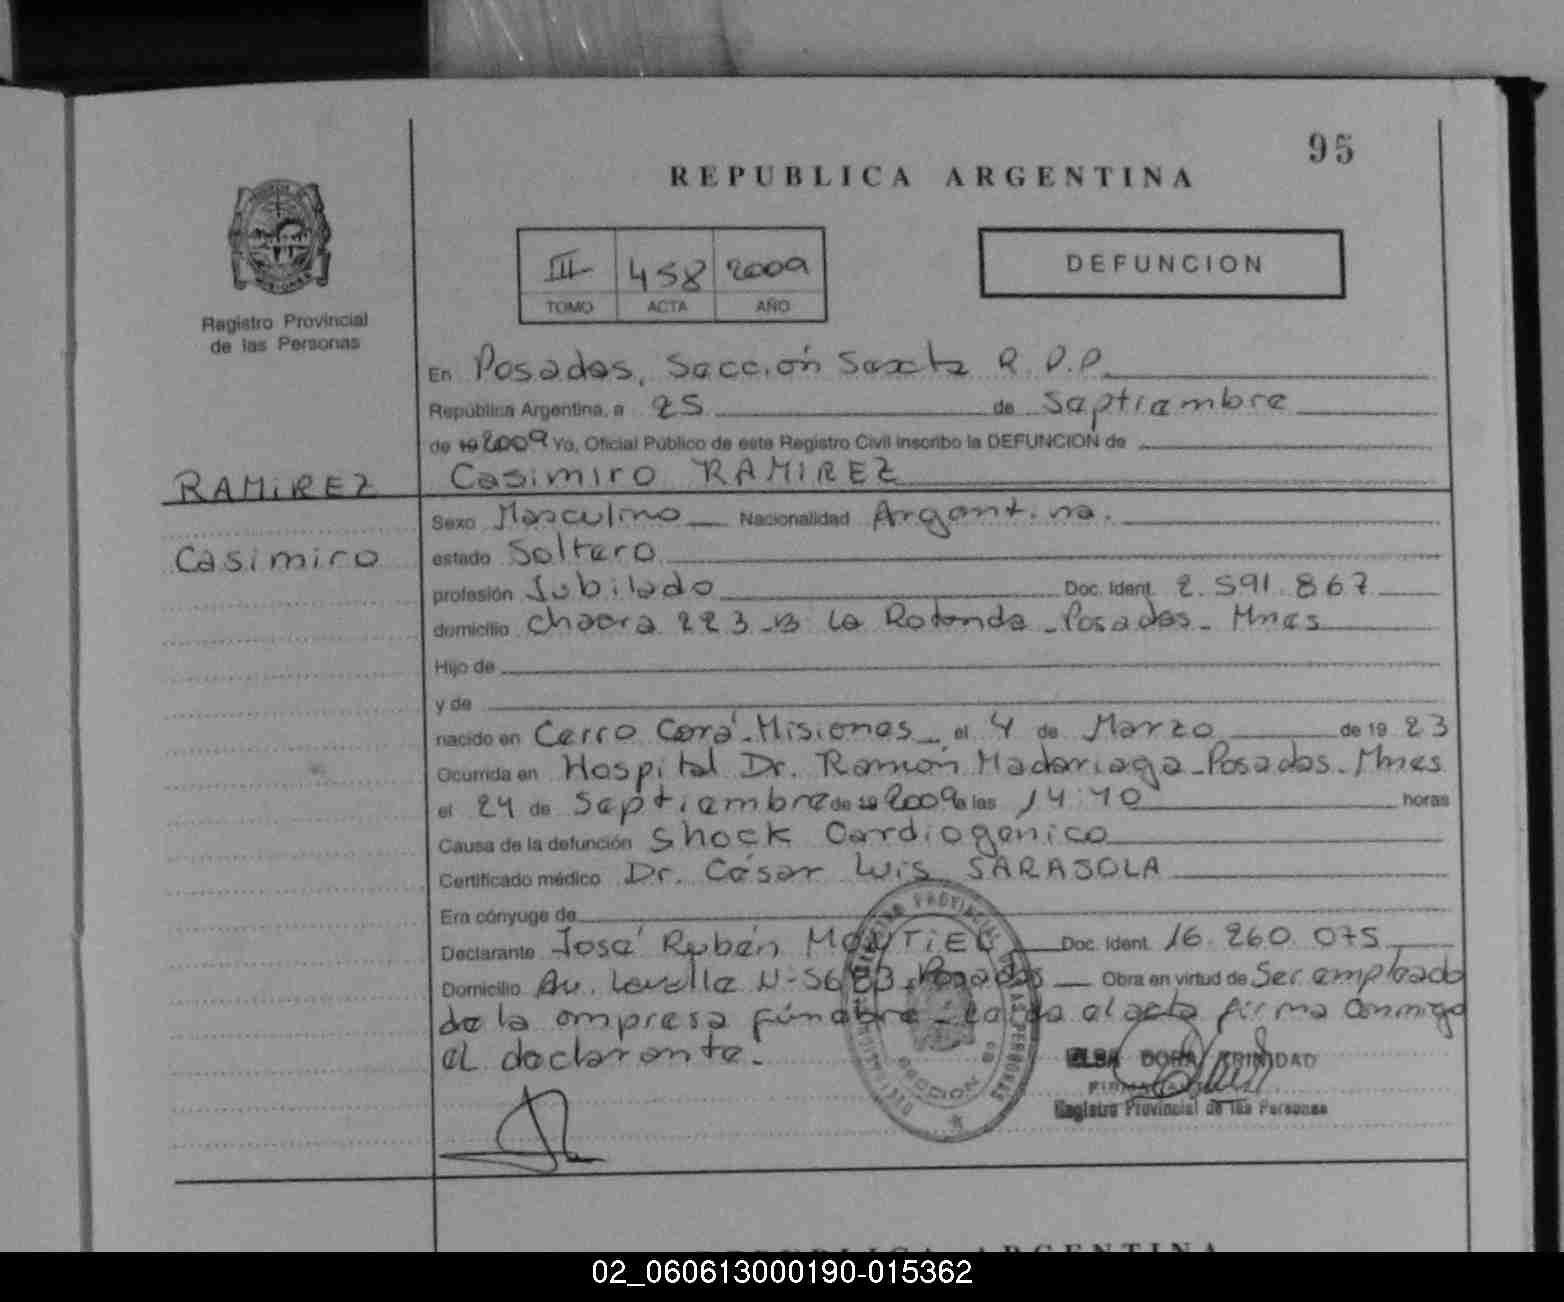 95
REPUBLICA ARGENTINA
III 458 2009
TOMO ACTA AÑO
DEFUNCION
Registro Provincial
de las Personas
En Posadas, Sección Sexta R.P.P.
República Argentina, a 25 de Septiembre
de 19 2009 Yo, Oficial Público de este Registro Civil inscribo la DEFUNCION de
RAMIREZ
Casimiro RAMIREZ
Sexo Masculino Nacionalidad Argentina.
Casimiro
estado Soltero
profesión Jubilado Doc. Ident. 2.591.867
domicilio Chacra 223-B La Rotonda-Posadas-Mnes
Hijo de
y de
nacido en Cerro Corá-Misiones el 4 de Marzo de 19 23
Ocurrida en Hospital Dr. Ramón Madariaga-Posadas-Mnes
el 24 de Septiembre de 19 2009 a las 14:10 horas
Causa de la defunción Shock Cardiogenico
Certificado médico Dr. César Luis SARASOLA
Era cónyuge de
Declarante José Rubén MONTIEL Doc. Ident. 16.260.075
Domicilio Av. Lavalle N-5683-Posadas Obra en virtud de Ser empleado
de la empresa fúnebre-Leída el acta firma Conmigo
el declarante.
ELBA DORA TRINIDAD
Registro Provincial de las Personas
REPUBLICA ARGENTINA
02_060613000190-015362